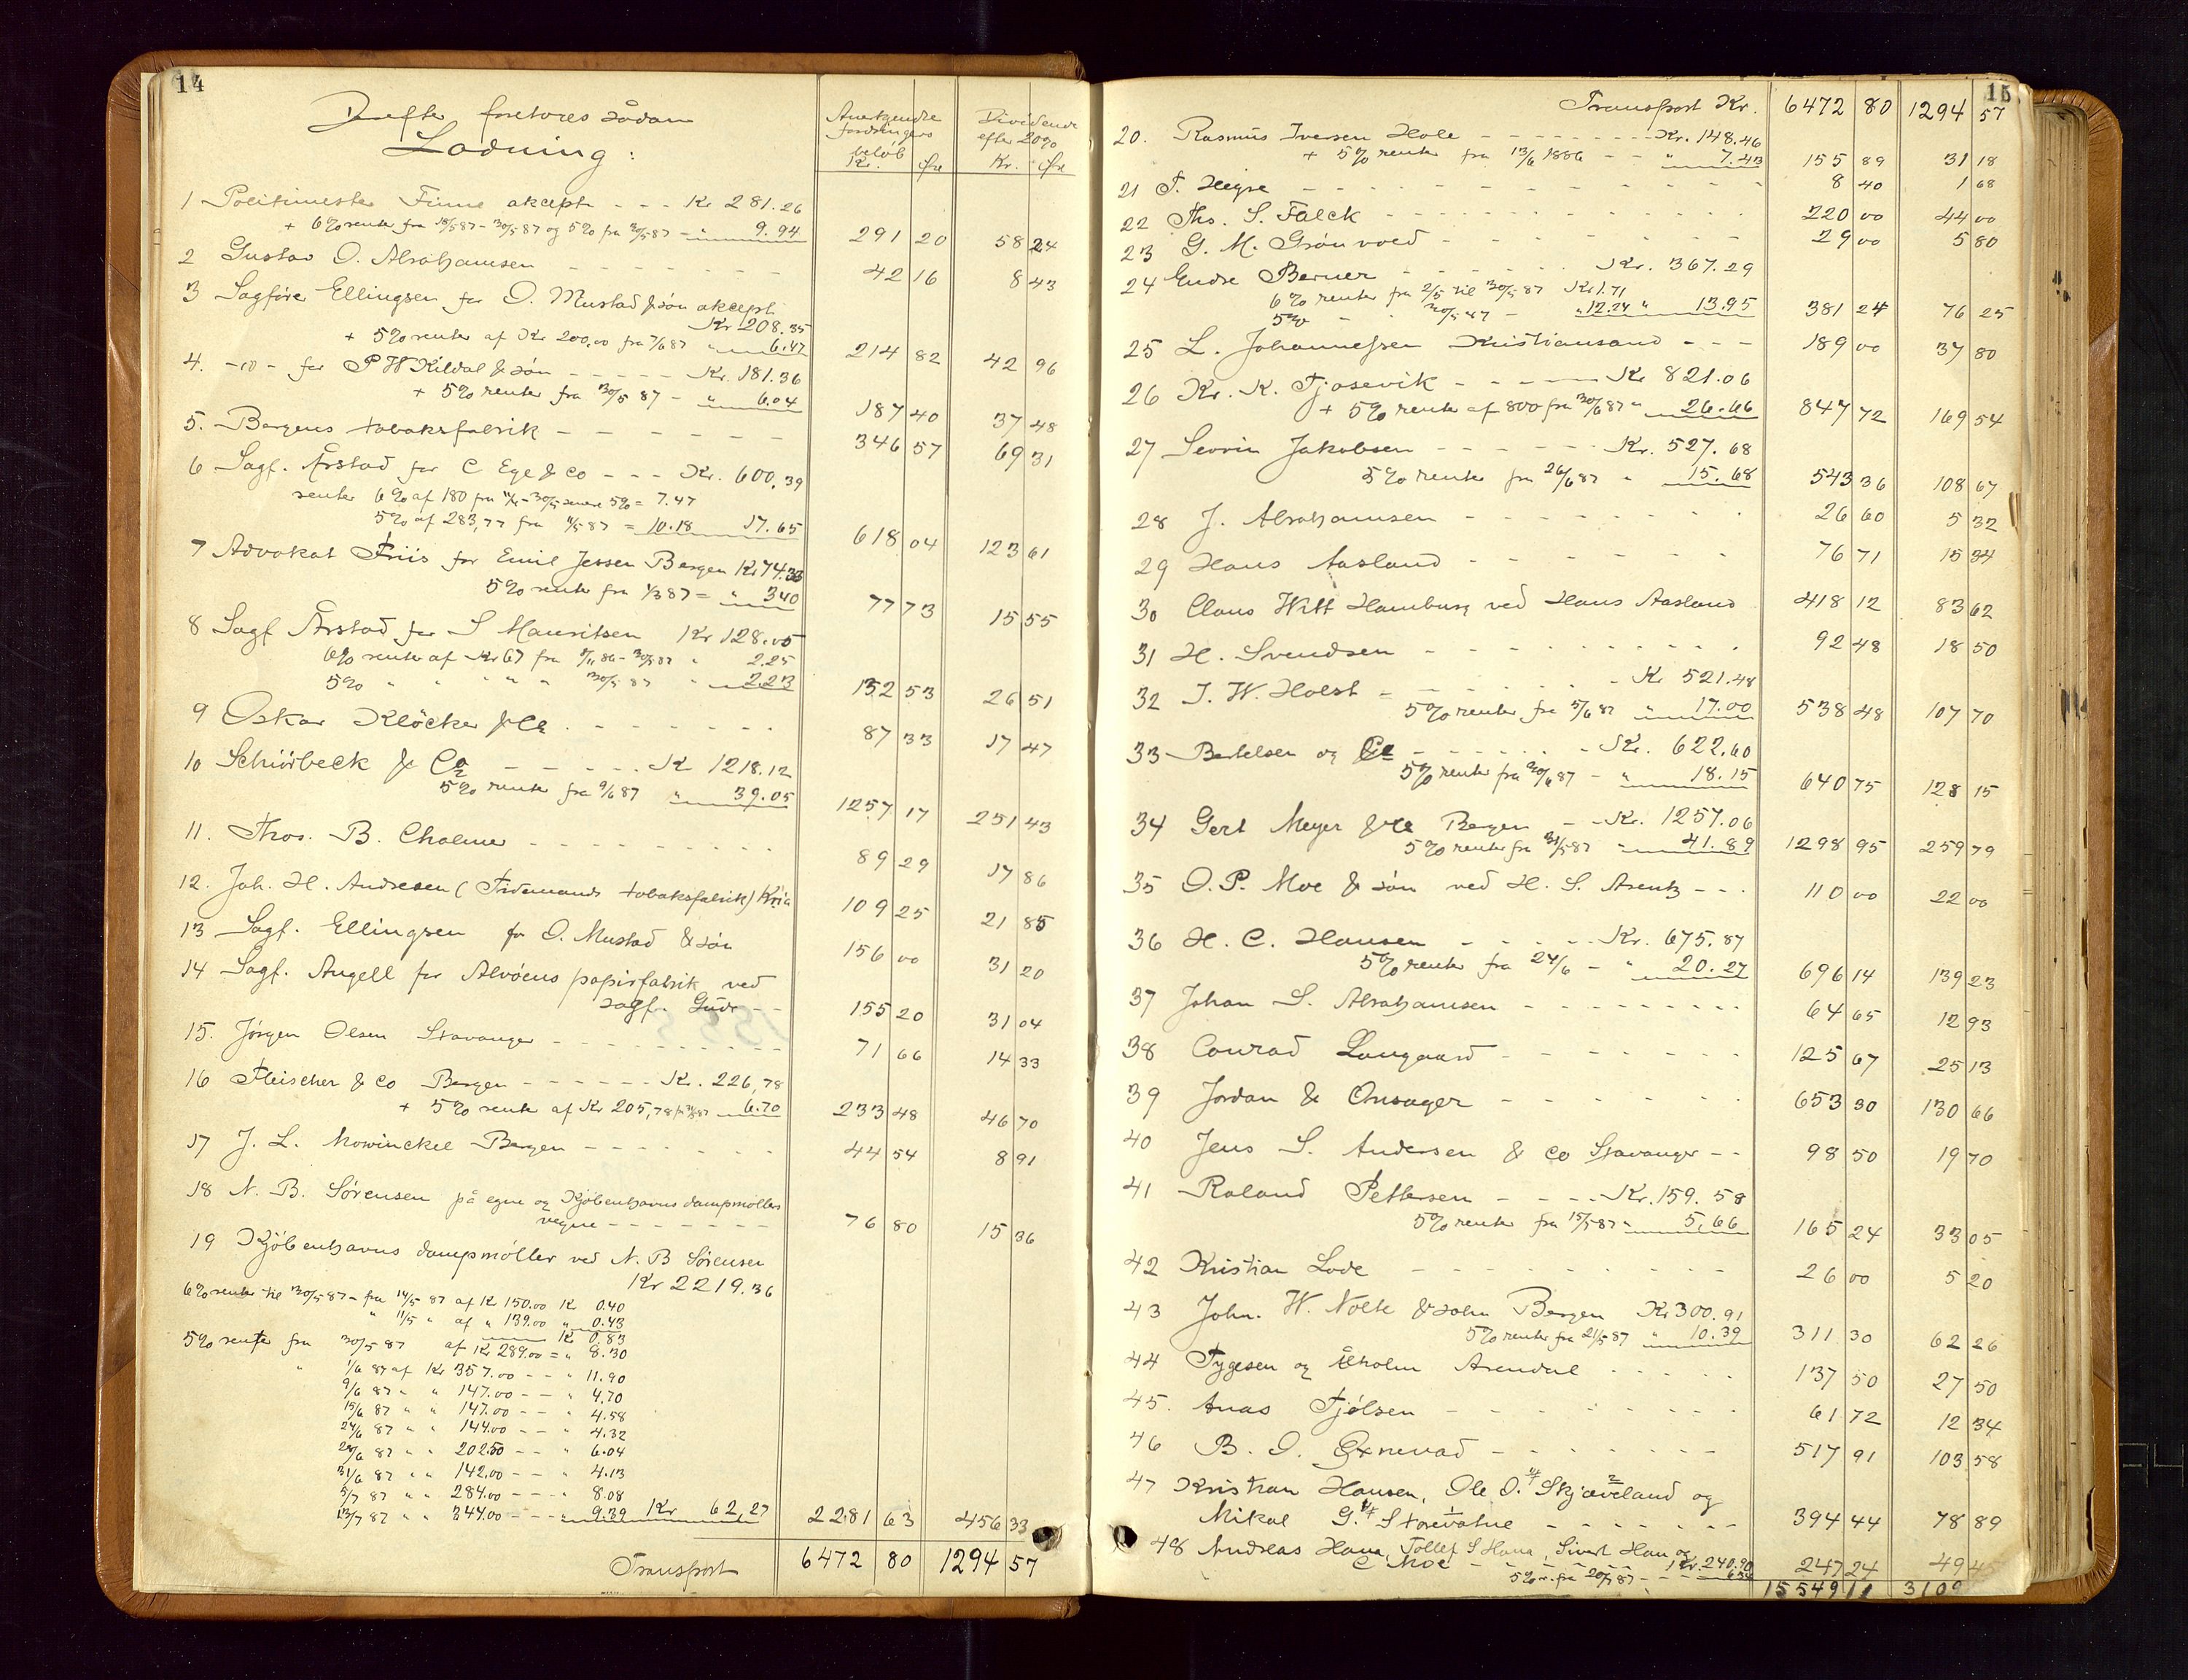 14
foretoves sådan
Lodning:
Anerkjendte fordringers beløb Kr. Øre
Dividende efter 20% Kr. Øre
1 Politimester Finne aksept - - - Kr 281.26
+ 6% renter fra 18/5 87 - 30/5 87 og 5% fra 30/5 87 - " 9.94 291 20 58 24
2 Gustav O. Abrahamsen - - - 42 16 8 43
3 Sagfører Ellingsen for O. Mustad & søn aksept
Kr 208.35
+ 5% renter af Kr 200,00 fra 7/6 87 " 6.47 214 82 42 96
4. -10- for P W Kildal & søn - - - Kr. 181.36
+ 5% renter fra 30/5 87 - " 6.04 187 40 37 48
5. Bergens tobaksfabrik - - - 346 57 69 31
6 Sagf. Årstad for C Ege & Co - - - Kr. 600,39
renter 6% af 180 fra - 30/5 senere 5% = 7.47
5% af 283,77 fra 11/5 87 = 10.18 17.65 618 04 123 61
7 Advokat Friis for Emil Jessen Bergen Kr 74.33
5% renter fra 1/3 87 = " 3 40 77 73 15 55
8 Sagf Årstad for S Mauritsen Kr 128.05
6% renter af Kr 67 fra 8/11 86 - 30/5 87 " 2.25
5% " " " " " 30/5 87 " 2.23 132 53 26 51
9 Oskar Klöcker & Co - - - 87 33 17 47
10 Schiörbeck & Co - - - Kr 1218.12
5% renter fra 9/6 87 " 39.05 1257 17 251 43
11. Thos. B. Chalmer - - - 89 29 17 86
12. Joh. H. Andresen (Tidemands tobaksfabrik) Kria 109 25 21 85
13 Sagf. Ellingsen for O. Mustad & søn 156 00 31 20
14 Sagf. Angell for Alvøens papirfabrik ved
sagf. Gude - - 155 20 31 04
15. Jørgen Olsen Stavanger - - - 71 66 14 33
16 Fleischer & Co Bergen - - - Kr. 226,78
+ 5% renter af Kr 205,78 fr 30/5 87 6.70 233 48 46 70
17 J. L. Mowinckel Bergen - - - 44 54 8 91
18 N. B. Sørensen på egne og Kjøbenhavns dampmøllers
vegne - - - 76 80 15 36
19 Kjøbenhavns dampmøller ved N. B Sørensen
Kr 2219.36
6% renter til 30/5 87 - fra 14/5 87 af Kr 150.00 Kr 0.40
" 11/5 " af " 139.00 " 0.43
Kr 0.83
5% rente fra 30/5 87 af Kr 289.00 = " 8.30
" 1/6 87 af Kr 357.00 - - " 11.90
9/6 87 " " 147.00 - - " 4.70
15/6 87 " " 147.00 - - " 4.58
24/6 87 " " 144.00 - - " 4.32
28/6 87 " " 202.50 - - " 6.04
31/6 87 " " 142.00 - - " 4.13
5/7 87 " " 284.00 - - " 8.08
13/7 87 " " 344.00 - - " 9.39 Kr 62,27 2281 63 456 33
Transport 6472 80 1294 57
15
Transport Kr. 6472 80 1294 57
20. Rasmus Iversen Hole - - - Kr. 148.46
+ 5% renter fra 13/6 1886 - - " 7.43 155 89 31 18
21 T. Heyre - - - 8 40 1 68
22 Ths. S. Falck - - - 220 00 44 00
23 G. M. Grönvold - - - 29 00 5 80
24 Endre Berner - - - Kr. 367.29
6% renter fra 2/5 til 30/5 87 Kr 1.71
5% - " 30/5 87 - " 12.24 " 13.95 381 24 76 25
25 L. Johannessen Kristiansand - - - 189 00 37 80
26 Kr. K. Tjosevik - - - Kr 821.06
+ 5% renter af 800 fra 30/6 87 " 26.66 847 72 169 54
27 Severin Jakobsen - - - Kr. 527.68
5% renter fra 26/6 87 " 15.68 543 36 108 67
28 J. Abrahamsen - - - 26 60 5 32
29 Hans Aasland - - - 76 71 15 34
30 Claus Witt Hamburg ved Hans Aasland 418 12 83 62
31 H. Svendsen - - - 92 48 18 50
32 J. W. Holst - - - Kr 521.48
5% renter fra 5/6 87 " 17.00 538 48 107 70
33 Bertelsen og Co - - - Kr. 622.60
5% renter fra 30/6 87 - " 18.15 640 75 128 15
34 Gert Meyer & Co Bergen - - Kr. 1257.06
5% renter fra 31/5 87 " 41.89 1298 95 259 79
35 O. P. Moe & søn ved H. S. Arentz - - - 110 00 22 00
36 H. C. Hansen - - - Kr. 675.87
5% renter fra 24/6 - " 20.27 696 14 139 23
37 Johan S. Abrahamsen - - - 64 65 12 93
38 Conrad Langaard - - - 125 67 25 13
39 Jordan & Onsager - - - 653 30 130 66
40 Jens S. Andersen & Co Stavanger - - 98 50 19 70
41 Roland Pettersen - - - Kr. 159.58
5% renter fra 15/5 87 " 5.66 165 24 33 05
42 Kristian Lode - - - 26 00 5 20
43 John. W. Nolte & sohn Bergen Kr 300.91
5% renter fra 21/5 87 " 10.39 311 30 62 26
44 Tygesen og Åholm Arendal - - - 137 50 27 50
45. Anas Tjølsen - - - 61 72 12 34
46 B. O. Gxnevad - - - 517 91 103 58
47 Kristian Hansen, Ole O. Skjæveland og
Mikal G. Storevatne - - - 394 44 78 89
48 Andreas Hana, Tollef S Hana, Sivert Han og
C Moe - - - Kr. 240.90
5% r. fra 20/7 87 - - 247 24 49 45
15549 11 3109